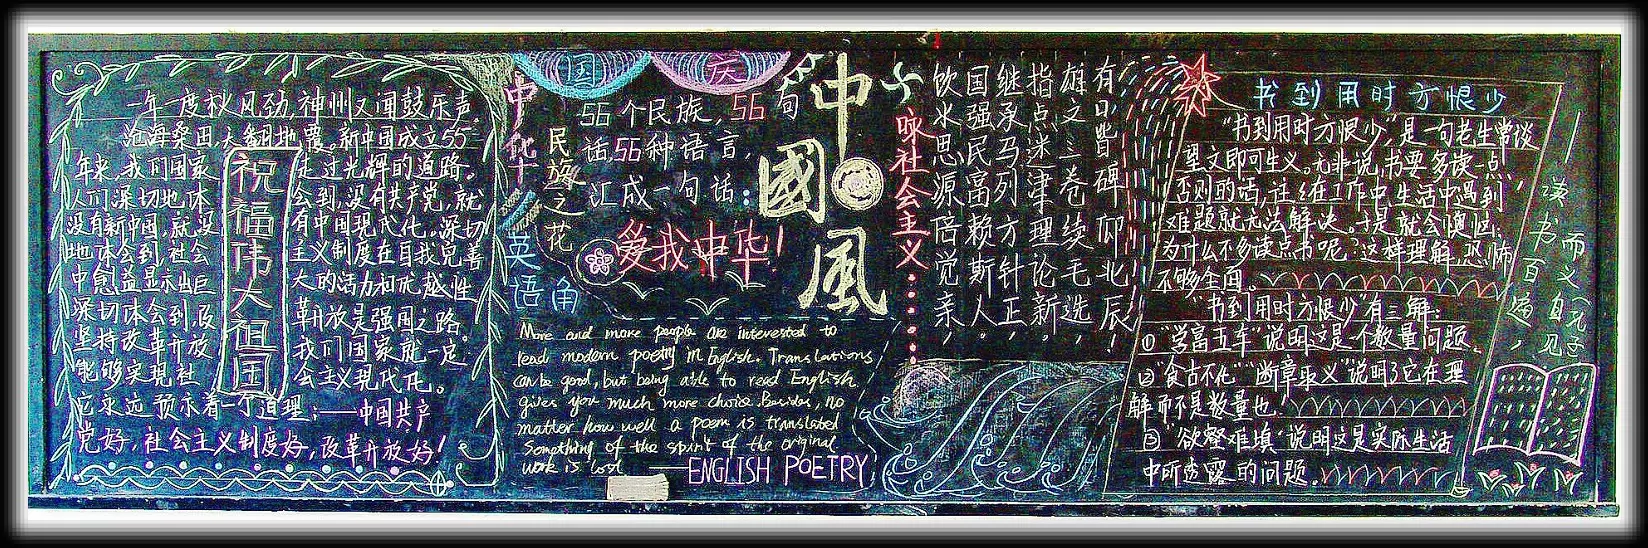 一年一度秋风劲,神州又闻鼓乐声
沧海桑田,大翻地震。新中国成立55
年来,我们国家
人们深切地体
没有新中国,就没
地体会到,社会
中愈益显示出巨
深切体会到,改
坚持改革开放
能够实现社
祝福伟大祖国
走过光辉的道路。
会到,没有共产党,就
有中国现代化。深切
主义制度在自我完善
大的活力和优越性
革开放是强国之路。
我们国家就一定
会主义现代化。
它永远预示着一个道理:——中国共产
党好,社会主义制度好,改革开放好!
国庆
中华
民族之花
56个民族,56句
话,56种语言,
汇成一句话:
爱我中华!
中國風
英语角
More and more people are interested to
read modern poetry in English. Translations
can be good, but being able to read English
gives you much more choice. Besides, no
matter how well a poem is translated
something of the spirit of the original
work is lost
——ENGLISH POETRY
咏社会主义
有口皆碑仰北辰,
雄文三卷续毛选,
指点迷津理论新。
继承马列方针正,
国强民富赖斯人。
饮水思源倍觉亲,
书到用时方恨少
"书到用时方恨少",是一句老生常谈
望文即可生义。无非说,书要多读一点,
否则的话,往往在工作中,生活中遇到
难题就无法解决。于是就会懊恼:
为什么不多读点书呢?这样理解,恐怖
不够全面。
"书到用时方恨少"有三解:
①"学富五车"说明这是个数量问题。
②"食古不化""断章取义"说明了它在理
解而不是数量也.
③"欲壑难填"说明这是实际生活
中所透露的问题.
读书百遍,
而义自见